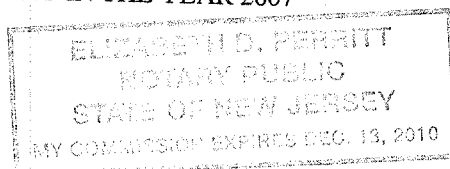 YEAR 2007
ELIZABETH D. PERRITT
NOTARY PUBLIC
STATE OF NEW JERSEY
MY COMMISSION EXPIRES DEC. 13, 2010